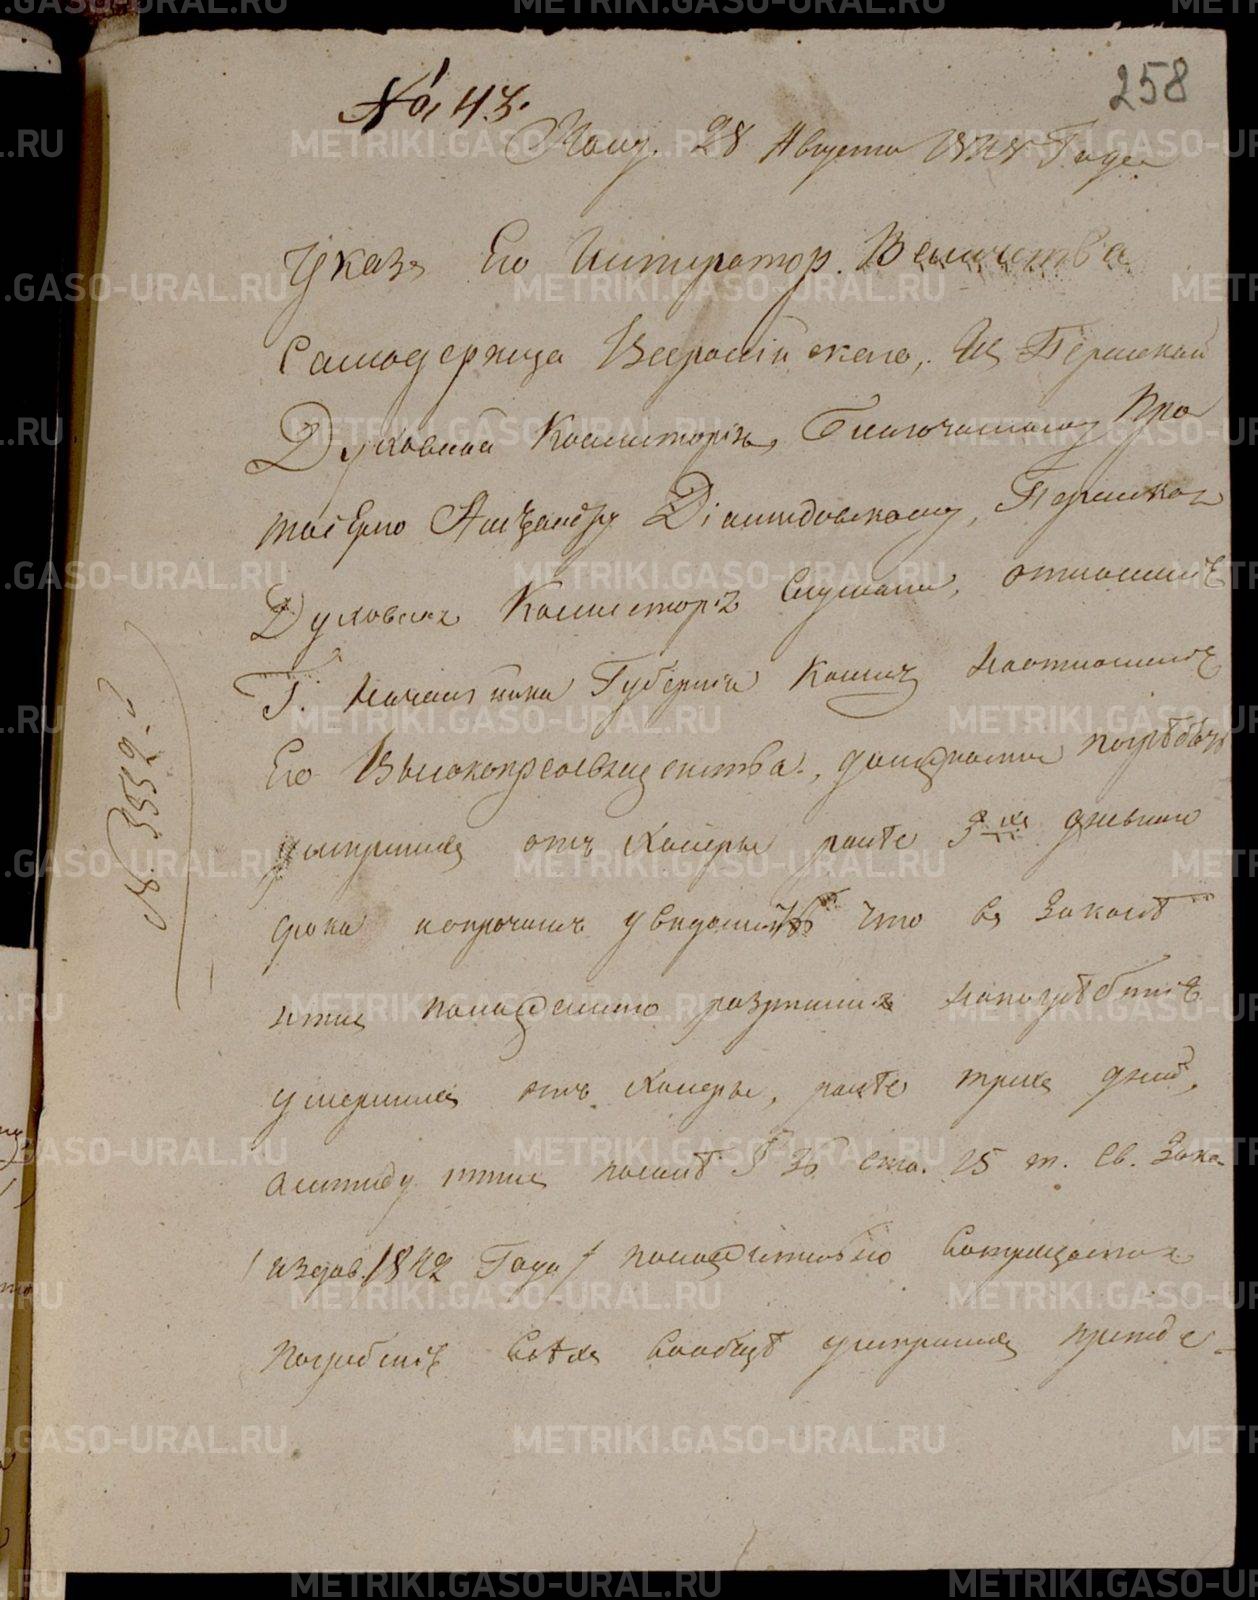 258
№ 43.
Полу. 28 Августа 1848 Года
Указъ Его Император. Величества
Самодержца Всеросійскаго, Из Пермской
Духовной Консисторіи, Благочинному Про
тоіерею Александру Діомидовскому, Пермская
Духовная Консисторія Слушали, отношеніе
Г. Начальника Губерніи Коимъ на отношеніе
Его Высокопреосвященства, дозволяется погребать
умершихъ отъ Холеры ранѣе 3хъ дневнаго
срока между прочимъ увѣдомилъ что въ Законѣ
нѣтъ положительно разрѣшенія на погребеніе
умершихъ отъ Холеры, ранѣе трехъ дней,
а между тѣмъ 36 ст. 15 т. Св. Зако.
/издав. 1842 Года/ положительно воспрещается
погребеніе всѣхъ вообще умершихъ прежде
№ 3552.
METRIKI.GASO-URAL.RU